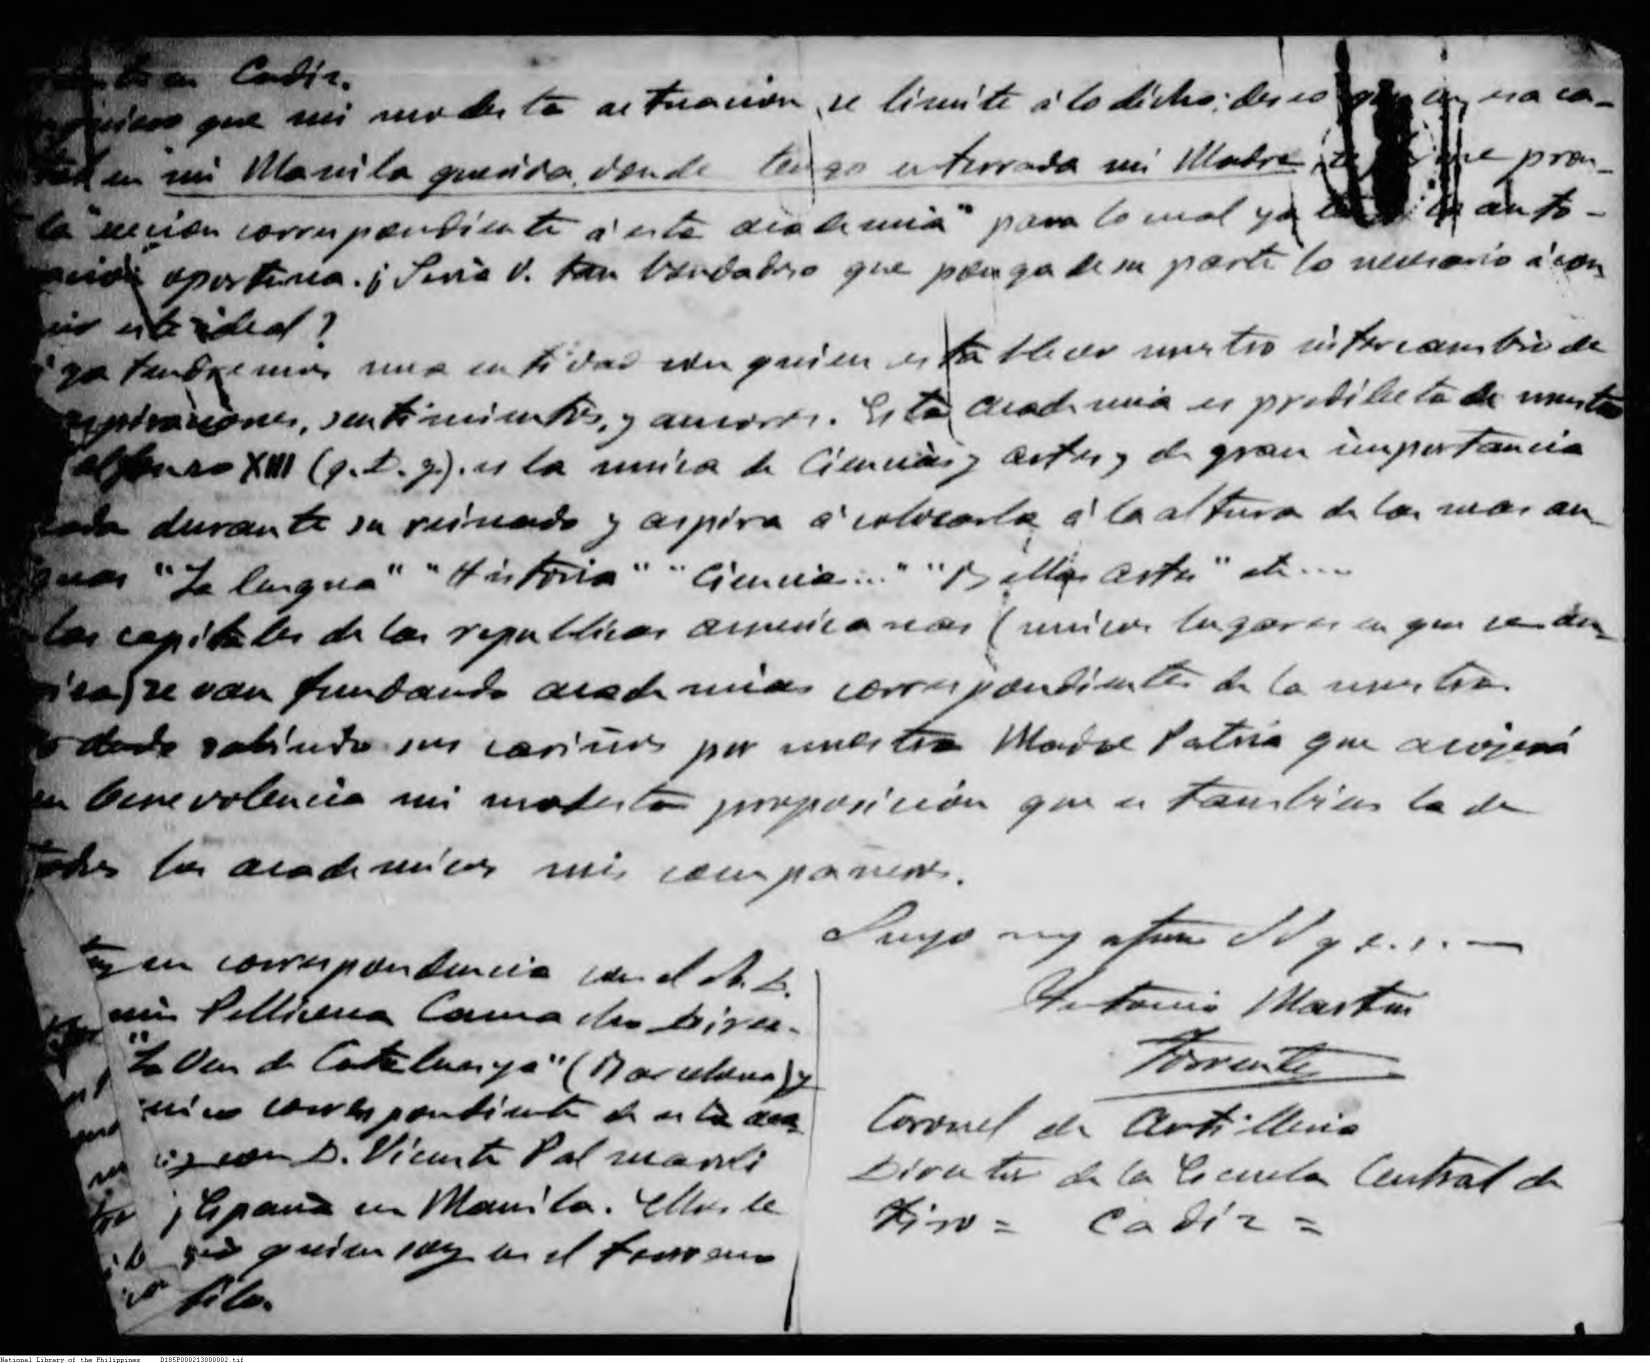 en Cadiz.
que mi modesta actuacion, se limite á lo dicho; deseo que en esa ca-
en mi Manila querida, donde tengo enterrada mi Madre, se forme pron-
la "seccion correspondiente á esta academia" para lo cual ya la auto-
oportuna. ¡Seria V. tan bondadoso que ponga de su parte lo necesario á con
este ideal?
ya tendremos una entidad con quien establecer nuestro intercambio de
aspiraciones, sentimientos, y amores. Esta academia es predilecta de nuestro
Alfonso XIII (q. D. g.). es la unica de Ciencias y artes y de gran importancia
durante su reinado y aspira á colocarla á la altura de las mas an-
"La lengua" "Historia" "Ciencia..." "Bellas Artes" etc...
las capitales de las republicas americanas (unicos lugares en que
se van fundando academias correspondientes de la nuestra.
dado sabiendo sus cariños por nuestra Madre Patria que acojerá
benevolencia mi modesta proposición que es tambien la de
todos los academicos mis compañeros.
Suyo muy afmo SS q e. s. —
Antonio Martin
Torrente
Coronel de Artilleria
Director de la Escuela Central de
Tiro = Cadiz =
en correspondencia con el
Pellicena Camacho Direc-
"La Veu de Catalunya" (Barcelona) y
unico correspondiente de esta aca
con D. Vicente Palmaroli
España en Manila. Ellos le
quien soy en el terreno